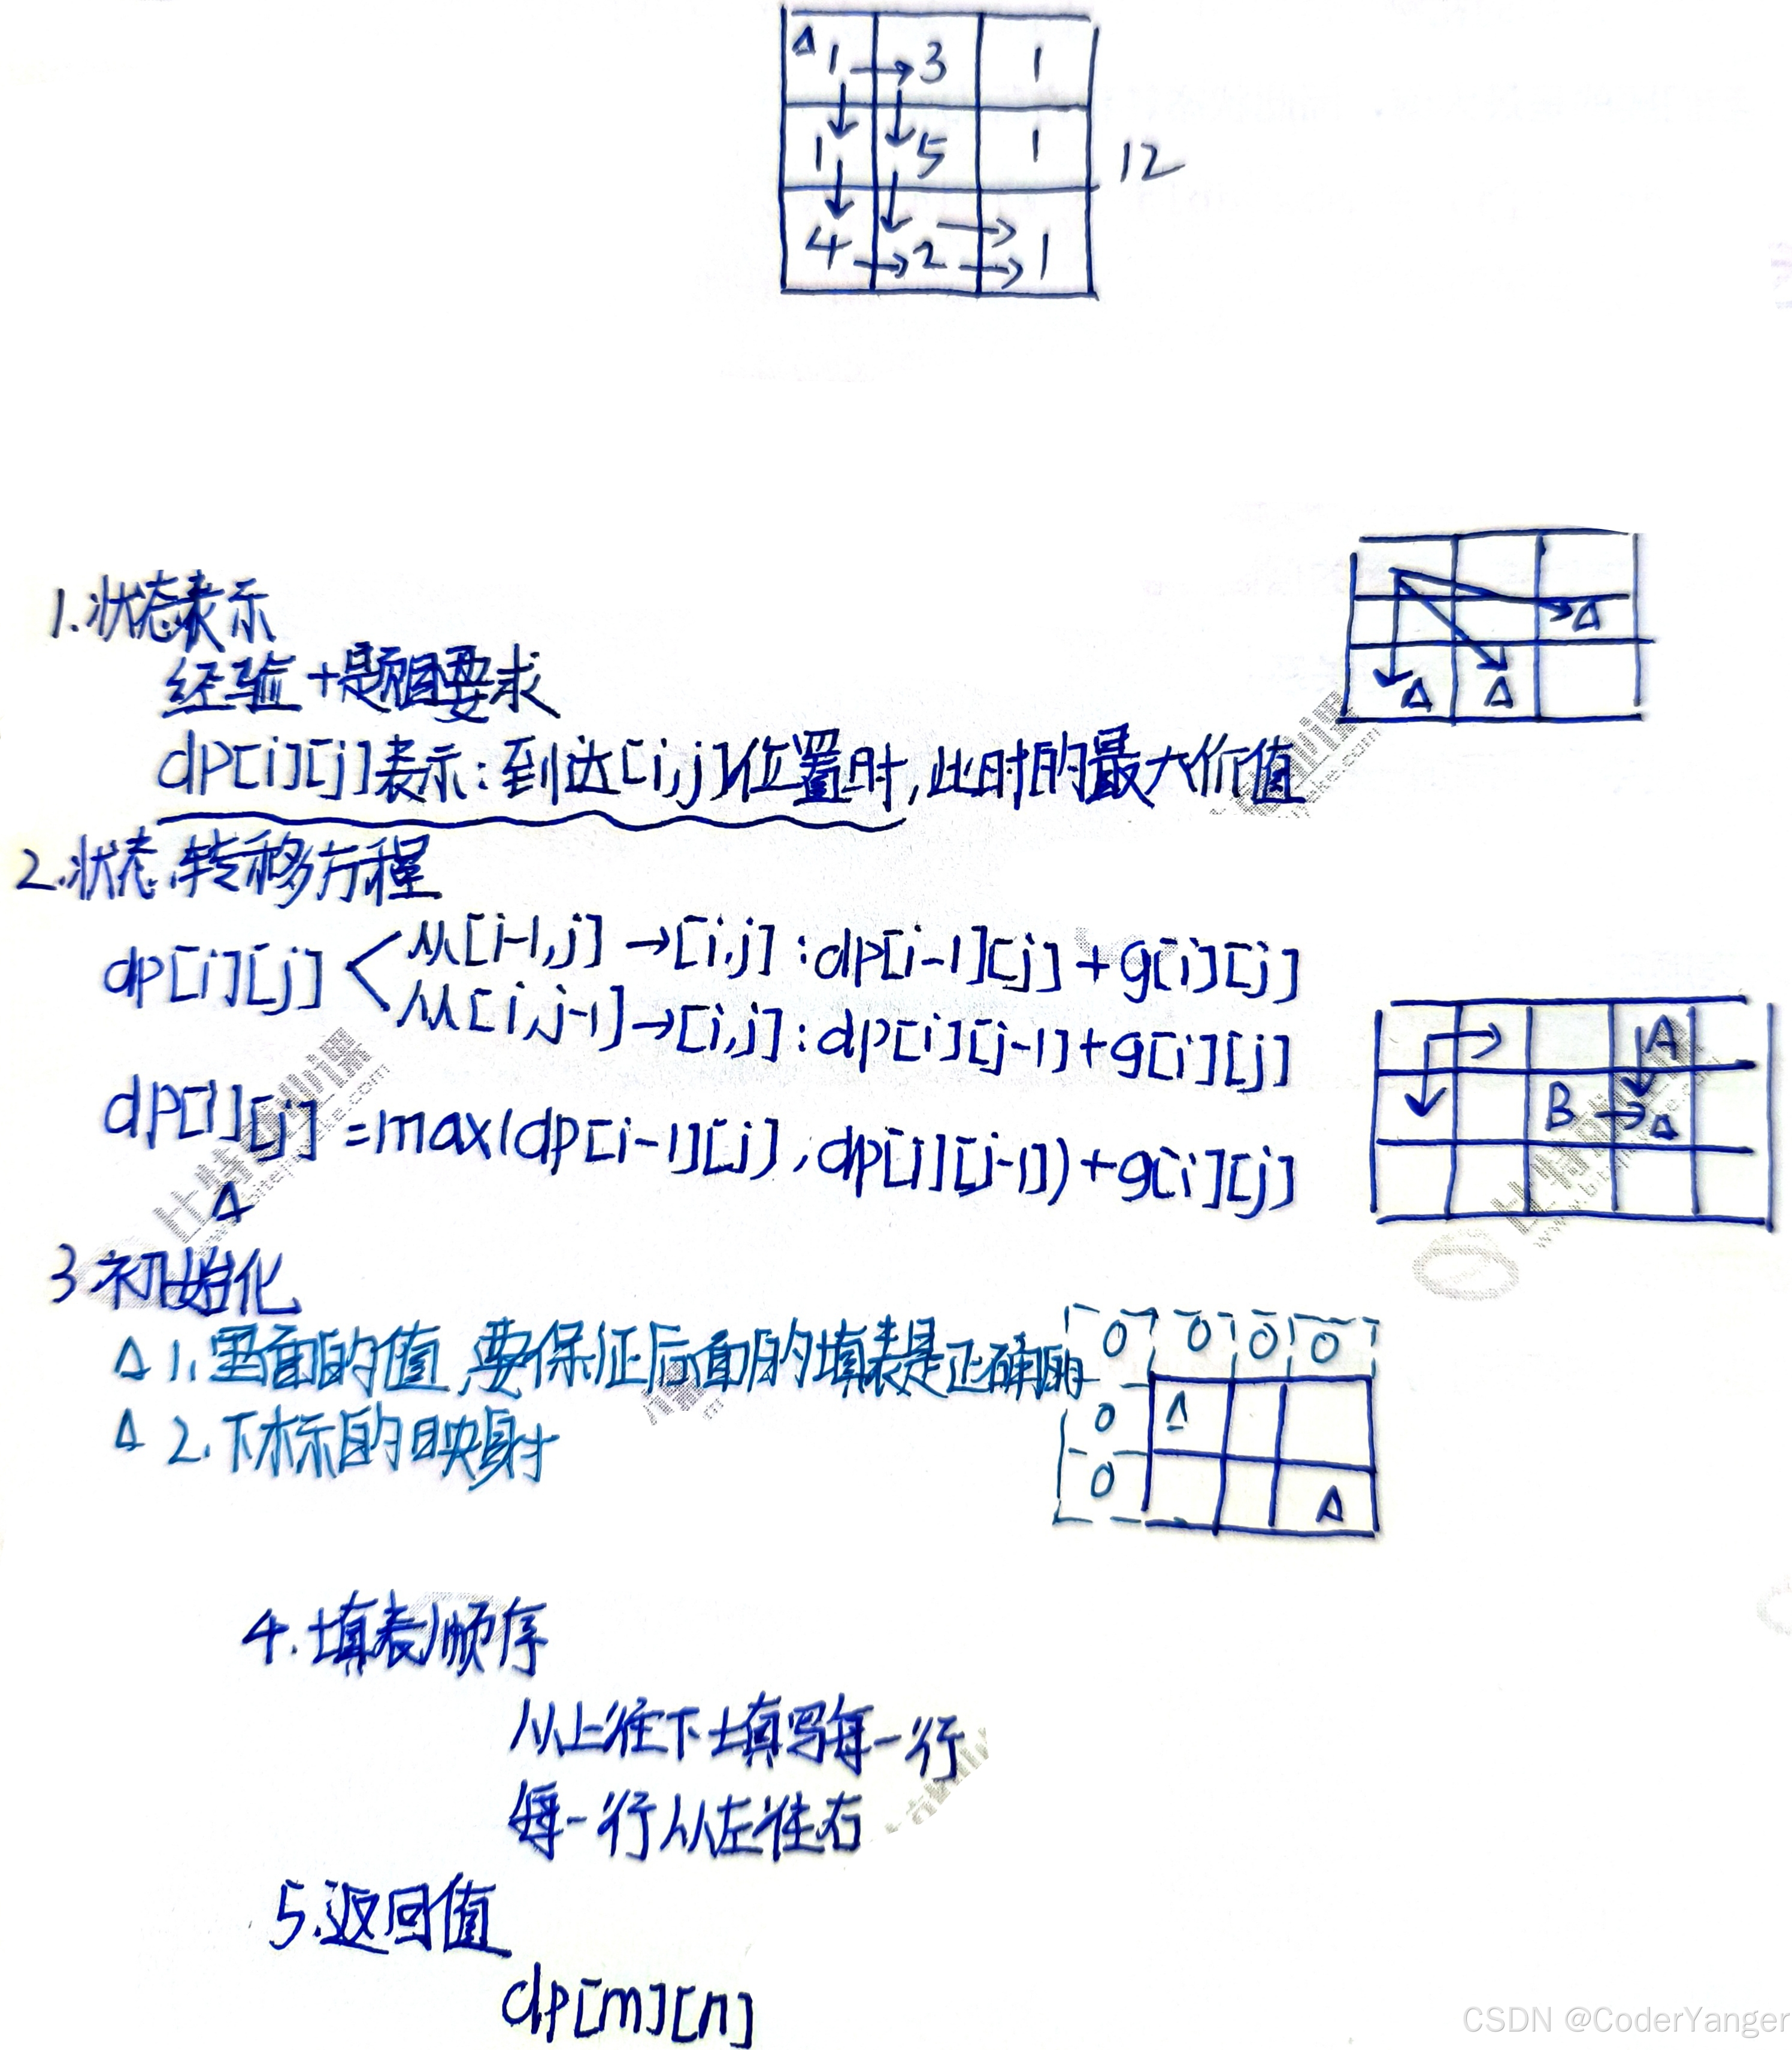 Δ 1 → 3 1
1 5 1 12
4 → 2 → 1
1.状态表示
经验+题目要求
dp[i][j]表示:到达[i,j]位置时,此时的最大价值
Δ
Δ Δ
2.状态转移方程
dp[i][j] < 从[i-1,j]→[i,j]:dp[i-1][j]+g[i][j]
从[i,j-1]→[i,j]:dp[i][j-1]+g[i][j]
dp[i][j]=max(dp[i-1][j],dp[i][j-1])+g[i][j]
Δ
A
B → Δ
3.初始化
Δ 1.里面的值,要保证后面的填表是正确的
Δ 2.下标的映射
0 0 0 0
0 Δ
0 Δ
4.填表顺序
从上往下填写每一行
每一行从左往右
5.返回值
dp[m][n]
CSDN @CoderYanger